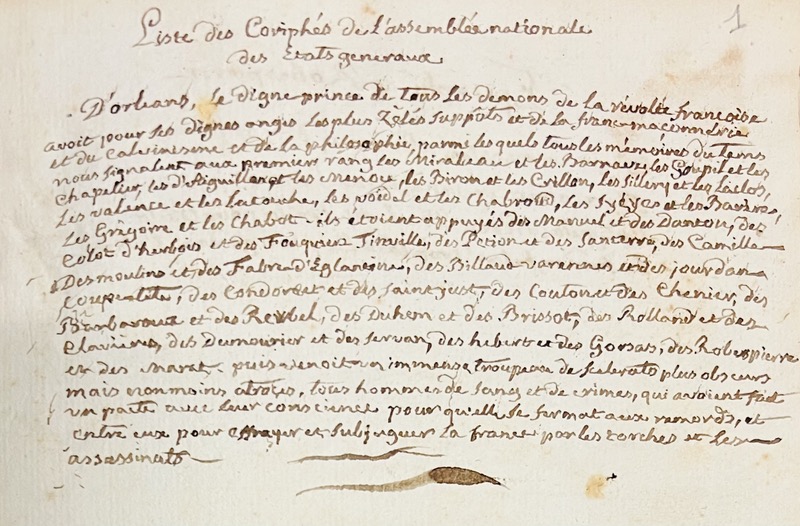 1
Liste des Coriphés de L'assemblée nationale
des Etats generaux
D'orleans, le digne prince de tous les demons de la révolte françoise
avoit pour ses dignes anges les plus zélés suppôts et de la franc-maçonnerie
et du Calvinisme et de la philosophie, parmi les quels tous les mémoires du tems
nous signalent aux premiers rangs les Mirabeau et les Barnave, les Goupil et les
Chapelier, les d'Aiguillon et les Menou, les Biron et les Crillon, les Sillery et les Laclos,
Les valence et les Latouche, les voidel et les Chabroud, les Syéyes et les Barère,
Les Grégoire et les Chabot - ils étoient appuyés des Manuel et des Danton, des
Colot d'herbois et des Fouquier Tinville, des Petion et des Santerre, des Camille
Desmoulins et des Fabre d'Eglantine, des Billaud varennes et des jourdan
Coupe-tête, des Condorcet et des Saint just, des Couton et des Chenier, des
Barbaroux et des Reubel, des Duhem et des Brissot, des Rolland et des
Clavieres, des Dumourier et des Servan, des hebert et des Gorsas, des Robespierre
et des Marat. puis venoit un immense troupeau de scelerats plus obscurs
mais non moins atroces, tous hommes de sang et de crimes, qui avoient fait
un pacte avec leur conscience pour qu'elle se fermat aux remords, et
entre eux pour effrayer et subjuguer la france par les torches et les
assassinats